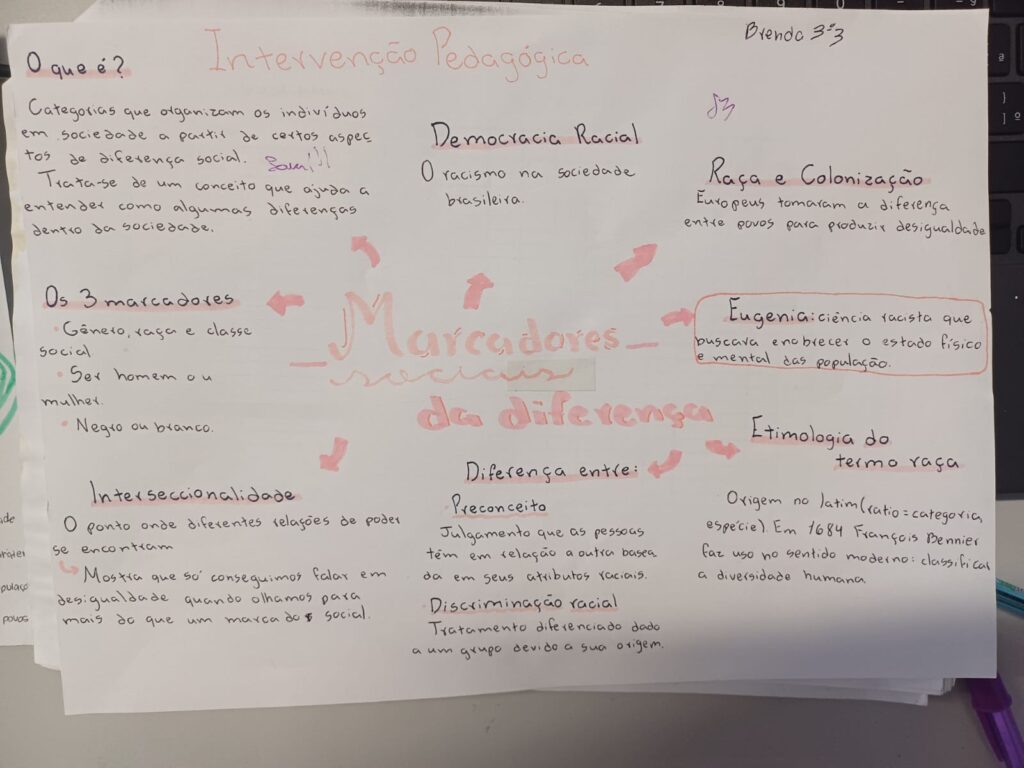 Intervenção Pedagógica
Brenda 3º3
O que é?
Categorias que organizam os indivíduos
em sociedade a partir de certos aspec
tos de diferença social.
Trata-se de um conceito que ajuda a
entender como algumas diferenças
dentro da sociedade.
Democracia Racial
O racismo na sociedade
brasileira.
Raça e Colonização
Europeus tomaram a diferença
entre povos para produzir desigualdade
Os 3 marcadores
• Gênero, raça e classe
social
• Ser homem ou
mulher.
• Negro ou branco.
Marcadores
sociais
da diferença
Eugenia: ciência racista que
buscava enobrecer o estado físico
e mental das população.
Etimologia do
termo raça
Origem no latim (ratio = categoria,
espécie). Em 1684 François Bennier
faz uso no sentido moderno: classificar
a diversidade humana.
Interseccionalidade
O ponto onde diferentes relações de poder
se encontram
Mostra que só conseguimos falar em
desigualdade quando olhamos para
mais do que um marcador social.
Diferença entre:
Preconceito
Julgamento que as pessoas
têm em relação a outra basea
da em seus atributos raciais.
Discriminação racial
Tratamento diferenciado dado
a um grupo devido a sua origem.
povos